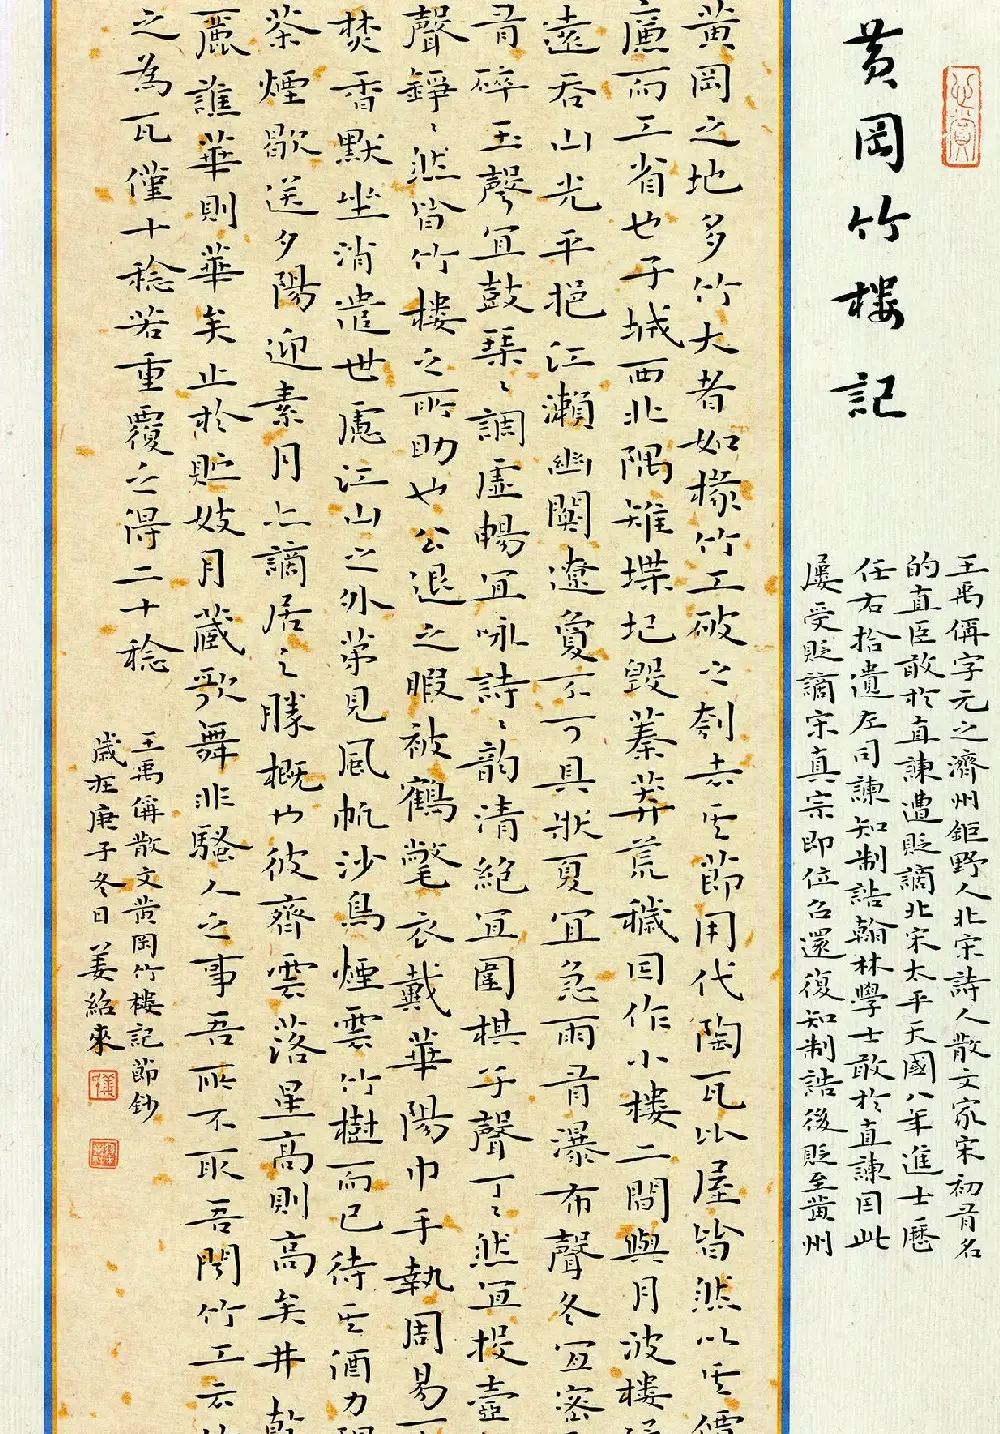 黄岡竹楼記
王禹偁字元之濟州鉅野人北宋詩人散文家宋初有名
的直臣敢於直諫遭貶謫北宋太平天國八年進士歷
任右拾遺左司諫知制誥翰林學士敢於直諫因此
屢受貶謫宋真宗即位召還復知制誥後貶至黄州
黄岡之地多竹大者如椽竹工破之刳去其節用代陶瓦比屋皆然以其價
廉而工省也子城西北隅雉堞圮毀蓁莽荒穢因作小樓二間與月波樓
遠吞山光平挹江瀨幽闃遼夐不可具狀夏宜急雨有瀑布聲冬宜密
有碎玉聲宜鼓琴琴調虛暢宜咏詩詩韵清絶宜圍棋子聲丁丁然宜投壺
聲錚錚然皆竹樓之所助也公退之暇被鶴氅衣戴華陽巾手執周易
焚香默坐消遣世慮江山之外第見風帆沙鳥煙雲竹樹而已待其酒力
茶煙歇送夕陽迎素月亦謫居之勝概也彼齊雲落星高則高矣井
麗譙華則華矣止於貯妓月藏歌舞非騷人之事吾所不取吾聞竹工云
之為瓦僅十稔若重覆之得二十稔
王禹偁散文黄岡竹樓記節鈔
歲在庚子冬日姜紹來